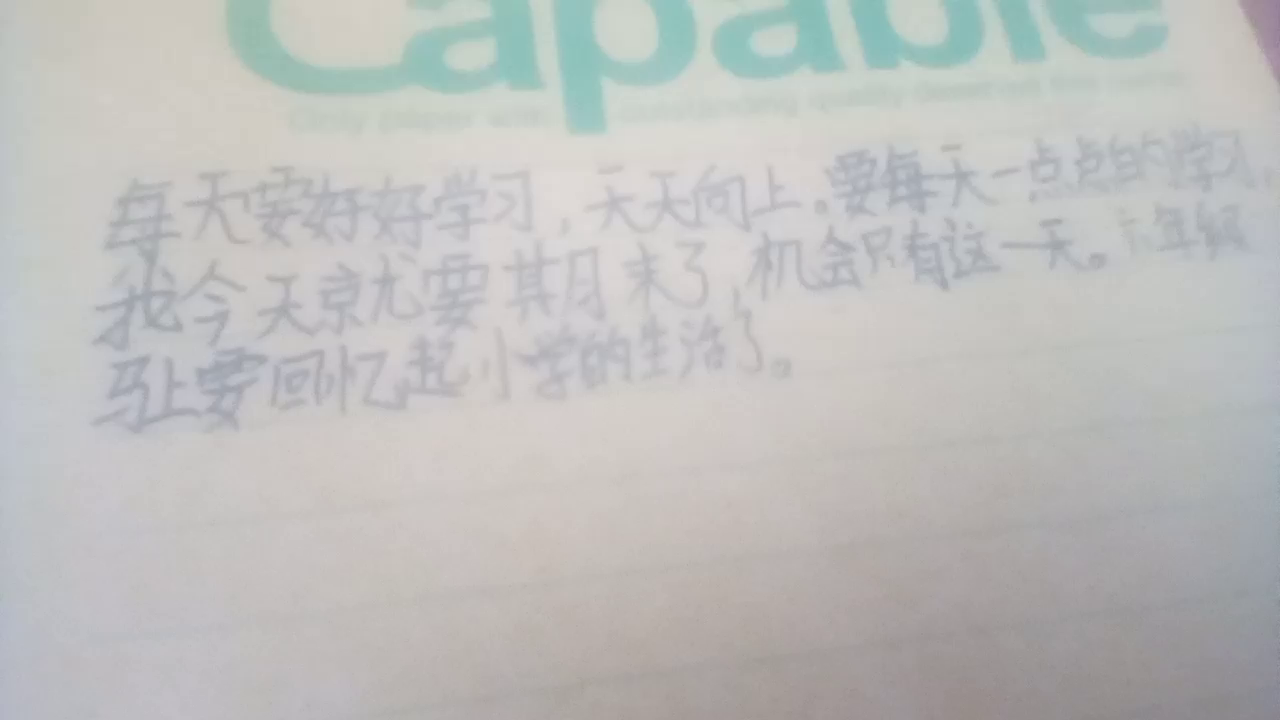 Capable
Only paper with outstanding quality deserves this name
每天要好好学习，天天向上。要每天一点点的学习，
我今天就要其月末了，机会只有这一天。六年级
马上要回忆起小学的生活了。